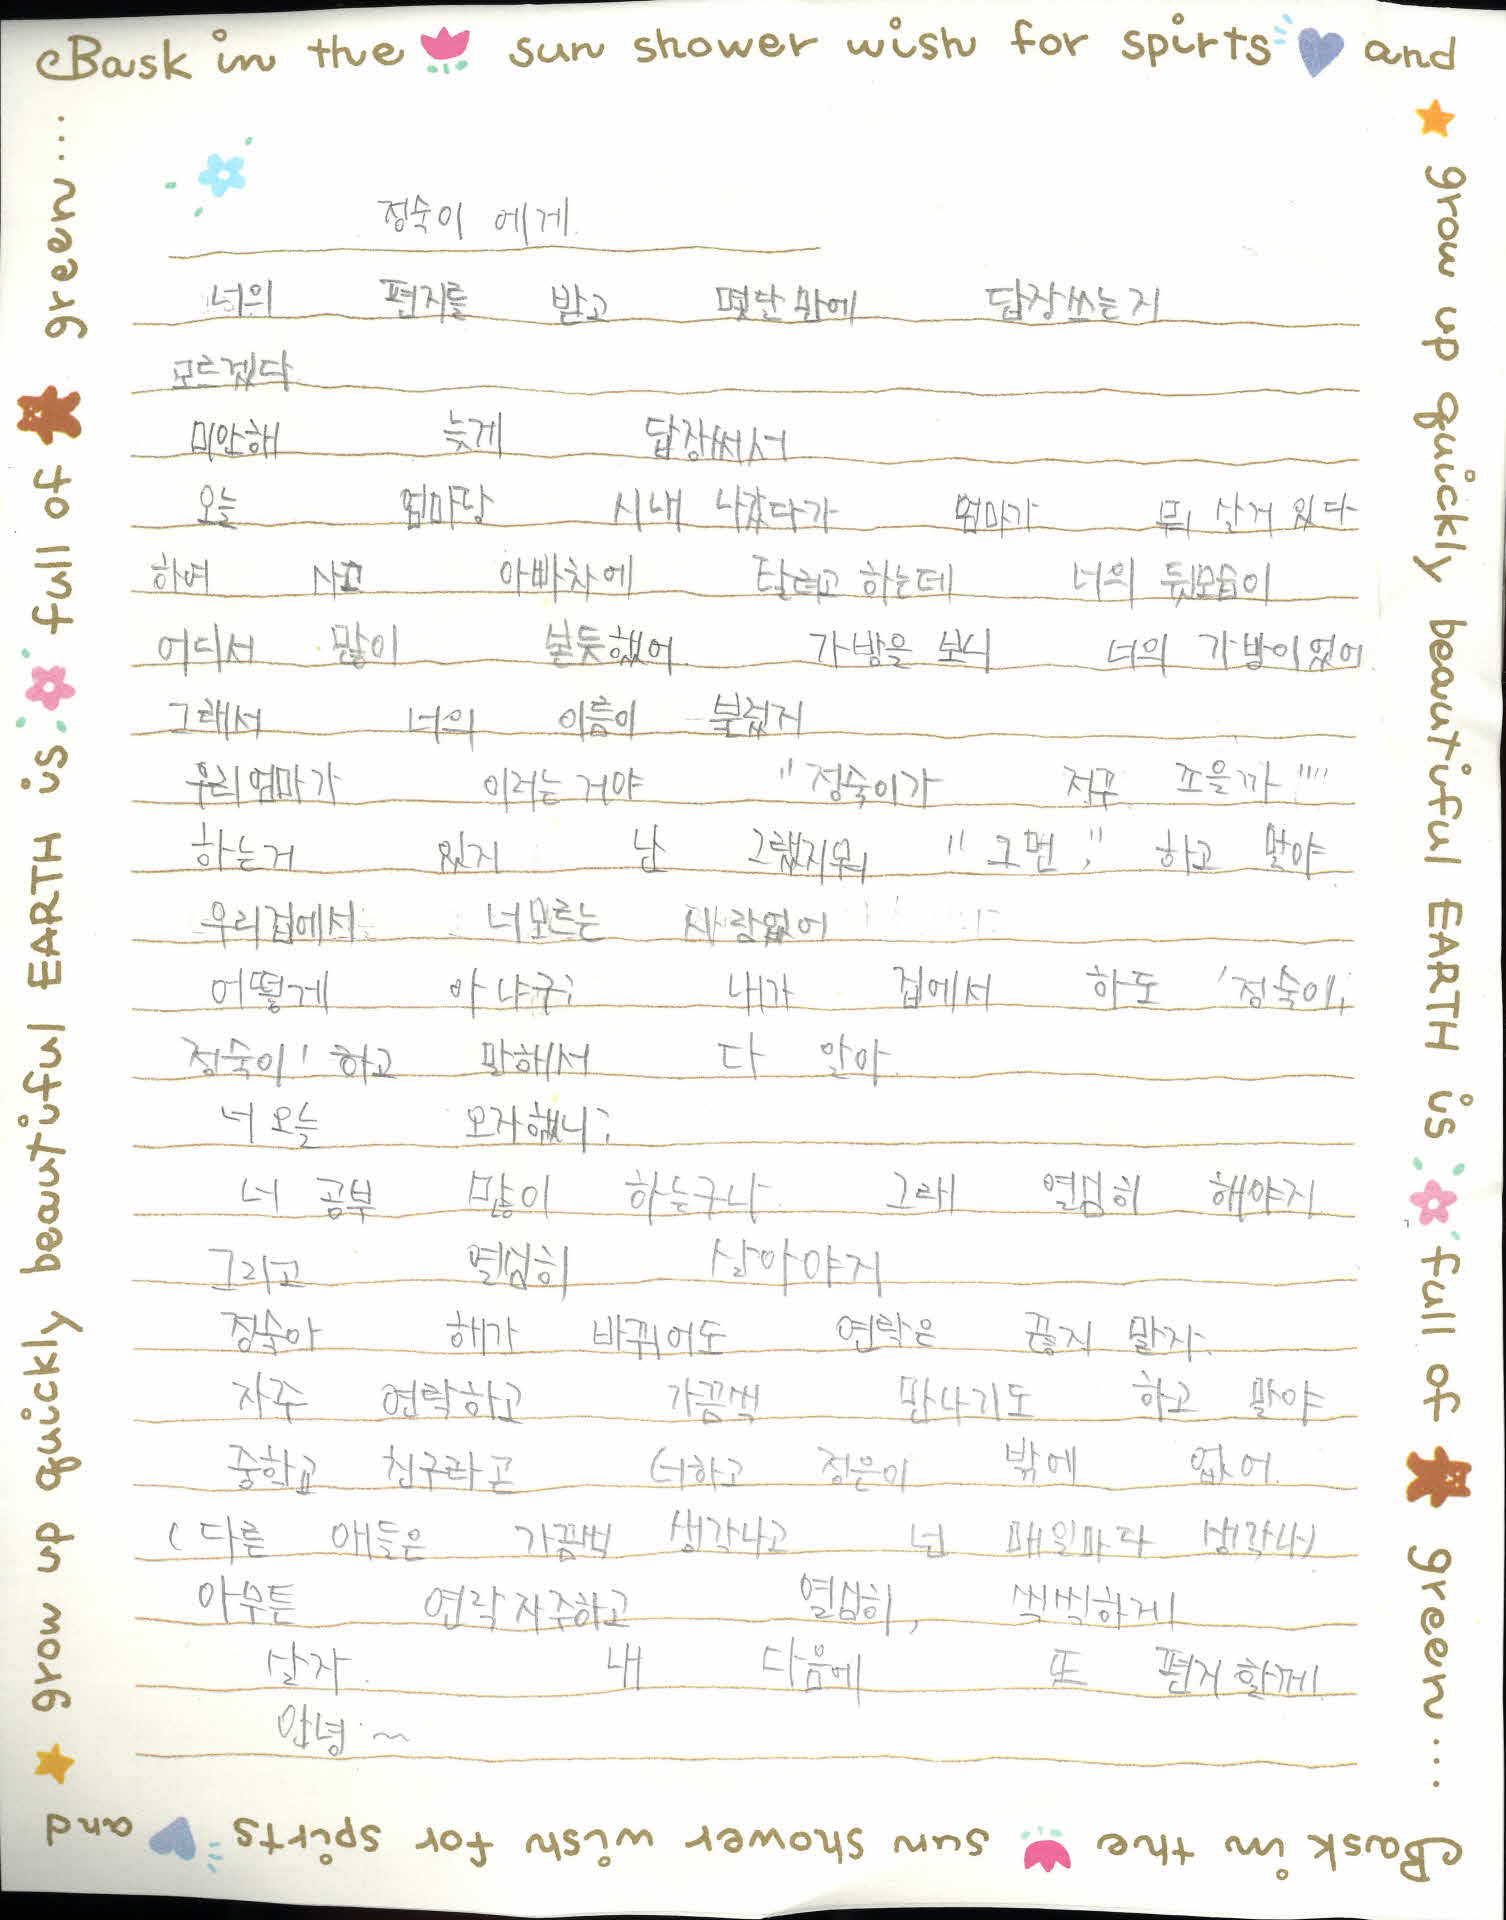 Bask in the sun shower wish for spirts and
grow up quickly beautiful EARTH is full of green....
정숙이 에게.
너의 편지를 받고 몇단만에 답장쓰는지
모르겠다
미안해 늦게 답장써서
오늘 엄마랑 시내 나갔다가 엄마가 뭐 살거 있다
하여 사고 아빠차에 탈려고 하는데 너의 뒷모습이
어디서 많이 본듯했어 가방을 보니 너의 가방이었어
그래서 너의 이름이 불렀지
우리엄마가 이러는거야 "정숙이가 저꾸
하는거 있지 난 그랬지뭐 "그면," 하고 말야
우리집에서 너모르는 사람없어
어떻게 아냐구; 내가 집에서 하도 '정숙이,
정숙이' 하고 말해서 다 알아.
너 오늘 오자했니;
너 공부 많이 하는구나. 그래 열심히 해야지
그리고 열심히 살아야지
정숙아 해가 바뀌어도 연락은 끊지 말자.
자주 연락하고 가끔씩 만나기도 하고 말야
중학교 친구라곤 너하고 정은이 밖에 없어.
(다른 애들은 가끔씩 생각나고 넌 매일마다 생각나)
아무튼 연락자주하고 열심히, 씩씩하게
살자. 내 다음에 또 편지할께.
안녕.~
Bask in the sun shower wish for spirts and
grow up quickly beautiful EARTH is full of green...